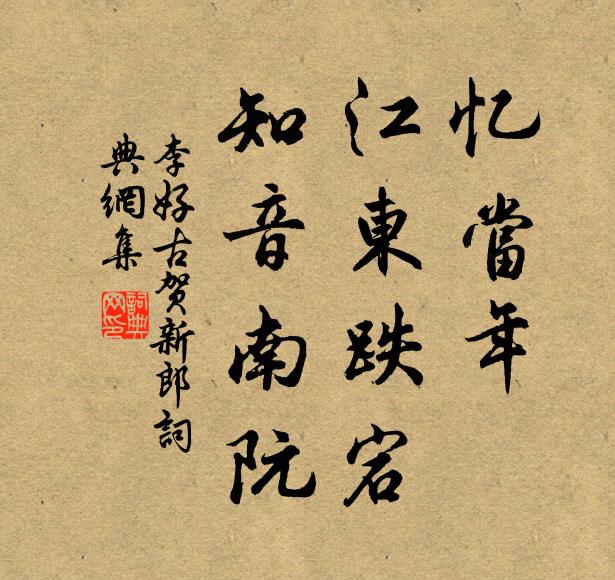 忆當年
江東跌宕
知音南阮
李好古贺新郎詞
典網集
詞典網印